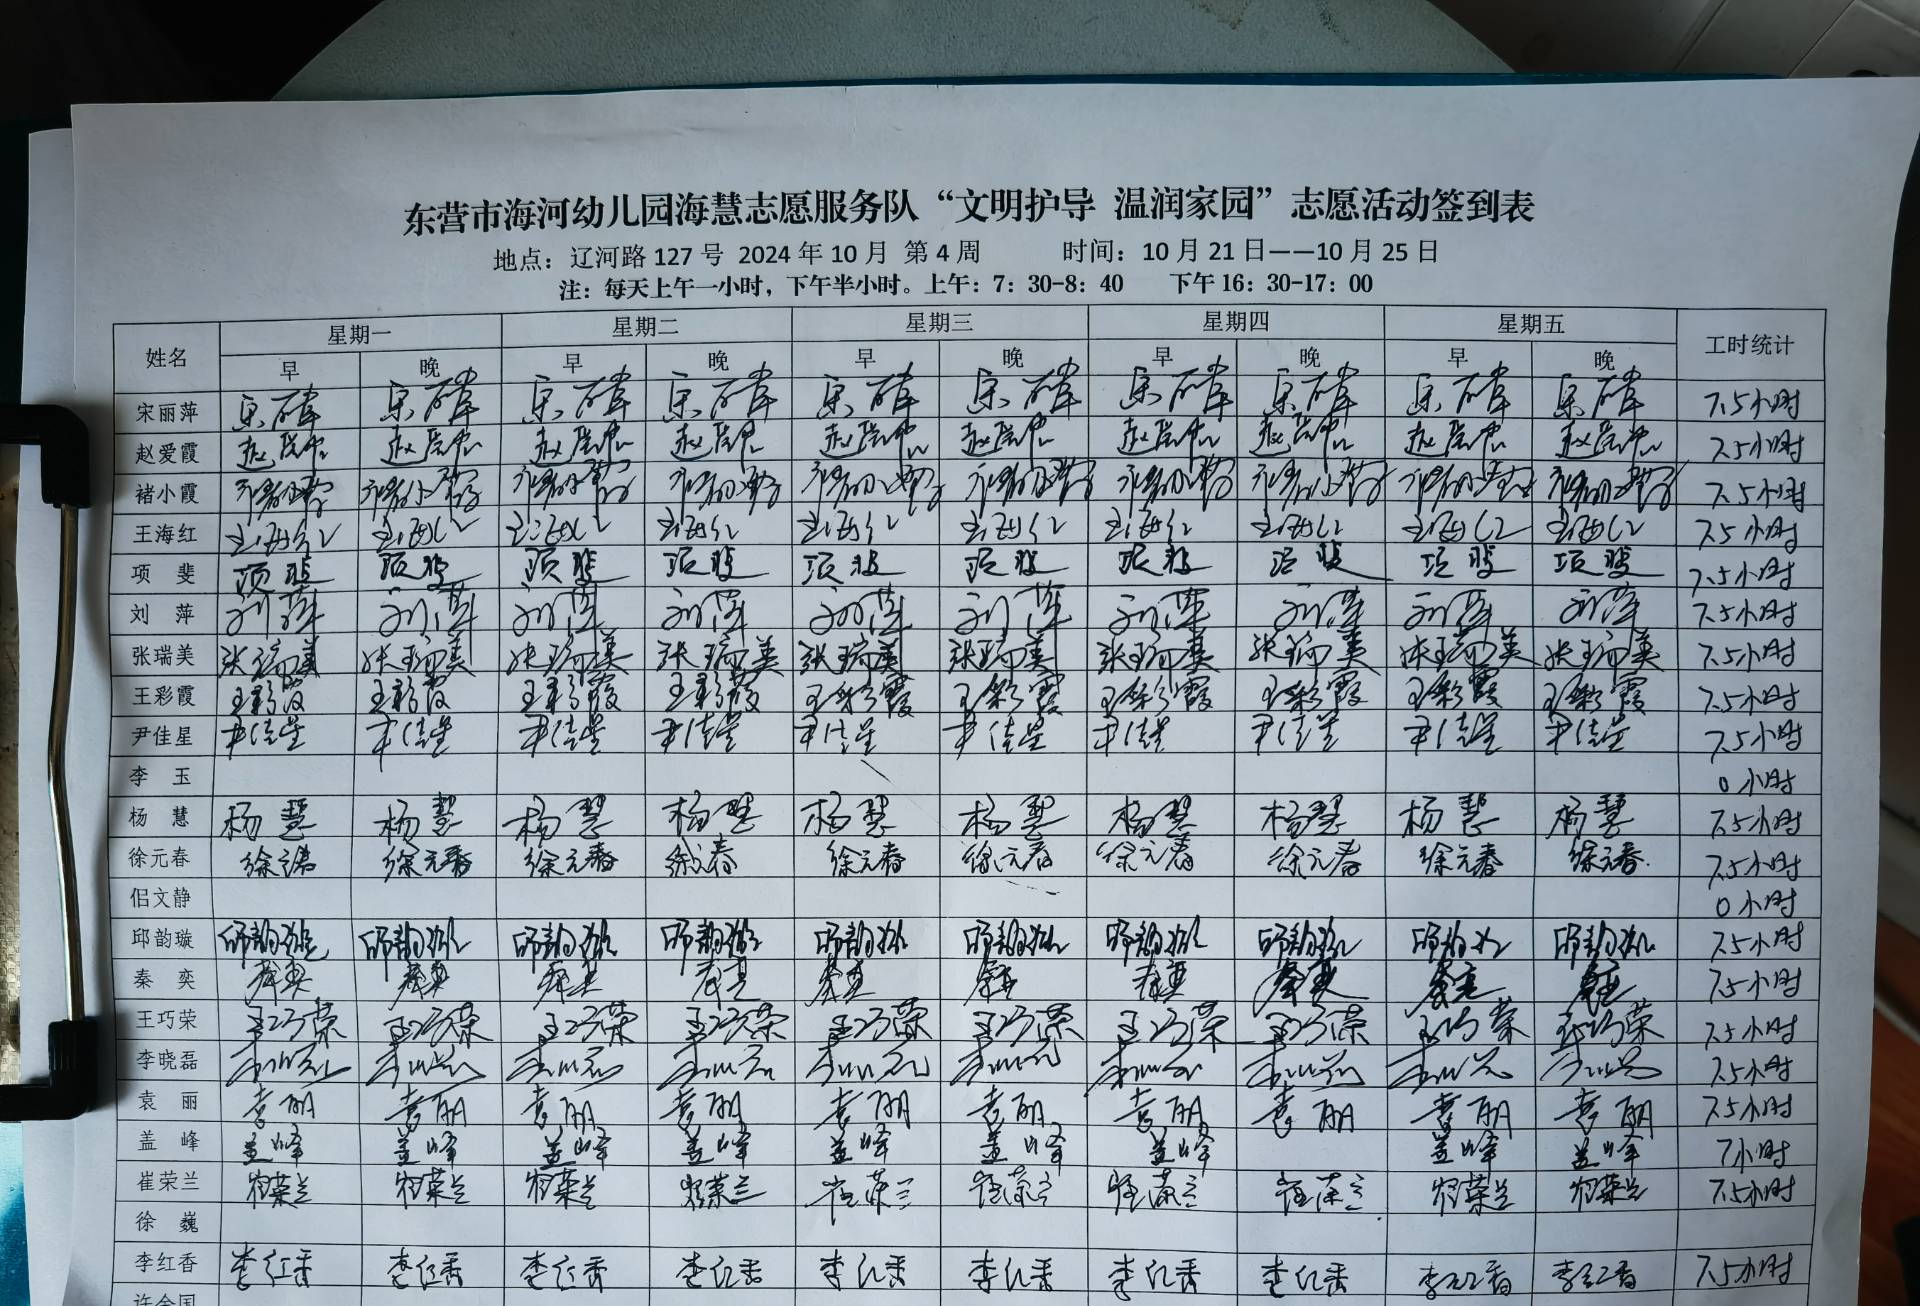 东营市海河幼儿园海慧志愿服务队“文明护导 温润家园”志愿活动签到表
地点：辽河路 127 号 2024 年 10 月 第 4 周 时间：10 月 21 日——10 月 25 日
注：每天上午一小时，下午半小时。上午：7：30-8：40 下午 16：30-17：00
姓名 星期一 星期二 星期三 星期四 星期五 工时统计
早 晚 早 晚 早 晚 早 晚 早 晚
宋丽萍 7.5小时
赵爱霞 7.5小时
褚小霞 7.5小时
王海红 王海红 王海红 王海红 王海红 王海红 王海红 王海红 王海红 王海红 王海红 7.5小时
项 斐 项斐 项斐 项斐 项斐 项斐 项斐 项斐 项斐 项斐 项斐 7.5小时
刘 萍 刘萍 刘萍 刘萍 刘萍 刘萍 刘萍 刘萍 刘萍 刘萍 刘萍 7.5小时
张瑞美 张瑞美 张瑞美 张瑞美 张瑞美 张瑞美 张瑞美 张瑞美 张瑞美 张瑞美 张瑞美 7.5小时
王彩霞 王彩霞 王彩霞 王彩霞 王彩霞 王彩霞 王彩霞 王彩霞 王彩霞 王彩霞 王彩霞 7.5小时
尹佳星 尹佳星 尹佳星 尹佳星 尹佳星 尹佳星 尹佳星 尹佳星 尹佳星 尹佳星 尹佳星 7.5小时
李 玉 0小时
杨 慧 杨慧 杨慧 杨慧 杨慧 杨慧 杨慧 杨慧 杨慧 杨慧 杨慧 7.5小时
徐元春 徐元春 徐元春 徐元春 徐元春 徐元春 徐元春 徐元春 徐元春 徐元春 徐元春 7.5小时
佀文静 0小时
邱韵璇 邱韵璇 邱韵璇 邱韵璇 邱韵璇 邱韵璇 邱韵璇 邱韵璇 邱韵璇 邱韵璇 邱韵璇 7.5小时
秦 奕 秦奕 秦奕 秦奕 秦奕 秦奕 秦奕 秦奕 秦奕 秦奕 秦奕 7.5小时
王巧荣 王巧荣 王巧荣 王巧荣 王巧荣 王巧荣 王巧荣 王巧荣 王巧荣 王巧荣 王巧荣 7.5小时
李晓磊 7.5小时
袁 丽 袁丽 袁丽 袁丽 袁丽 袁丽 袁丽 袁丽 袁丽 袁丽 袁丽 7.5小时
盖 峰 盖峰 盖峰 盖峰 盖峰 盖峰 盖峰 盖峰 盖峰 盖峰 7小时
崔荣兰 崔荣兰 崔荣兰 崔荣兰 崔荣兰 崔荣兰 崔荣兰 崔荣兰 崔荣兰 崔荣兰 崔荣兰 7.5小时
徐 巍
李红香 李红香 李红香 李红香 李红香 李红香 李红香 李红香 李红香 李红香 李红香 7.5小时